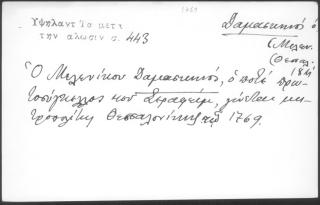 1769
Ὑψηλαντ Τὰ μετὰ
τὴν ἅλωσιν σ. 443
Δαμασκηνὸς ὁ
(Μελεν.
(Θεσσαλ.
Ὁ Μελενίκου Δαμασκηνός, ὁ ποτέ πρω-
τοσύγκελλος τοῦ Σεραφείμ, γίνεται μη-
τροπολίτης Θεσσαλονίκης τῷ 1769.